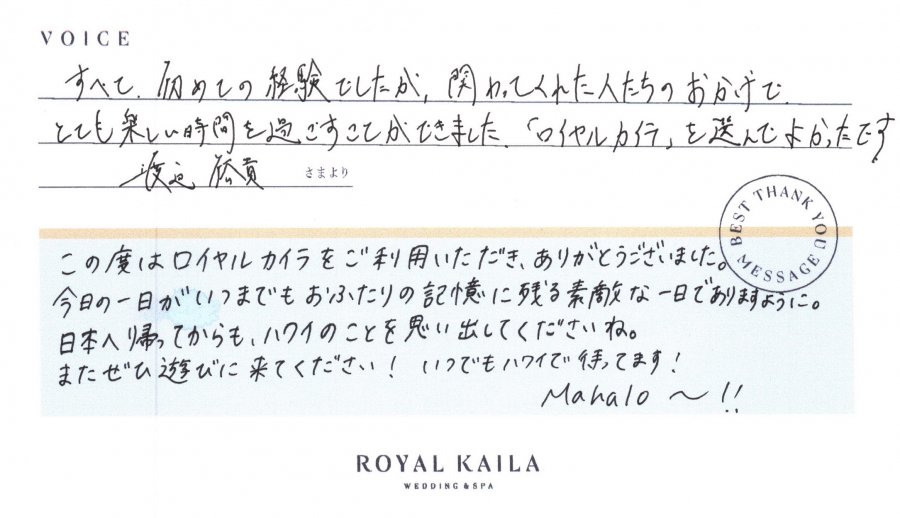 VOICE
すべて、初めての経験でしたが、関わってくれた人たちのおかげで、
とても楽しい時間を過ごすことができました。「ロイヤルカイラ」を選んでよかったです
渡辺 さまより
BEST THANK YOU MESSAGE
この度はロイヤルカイラをご利用いただき、ありがとうございました。
今日の一日がいつまでもおふたりの記憶に残る素敵な一日でありますように。
日本へ帰ってからも、ハワイのことを思い出してくださいね。
またぜひ遊びに来てください! いつでもハワイで待ってます!
Mahalo 〜!!
ROYAL KAILA
WEDDING & SPA